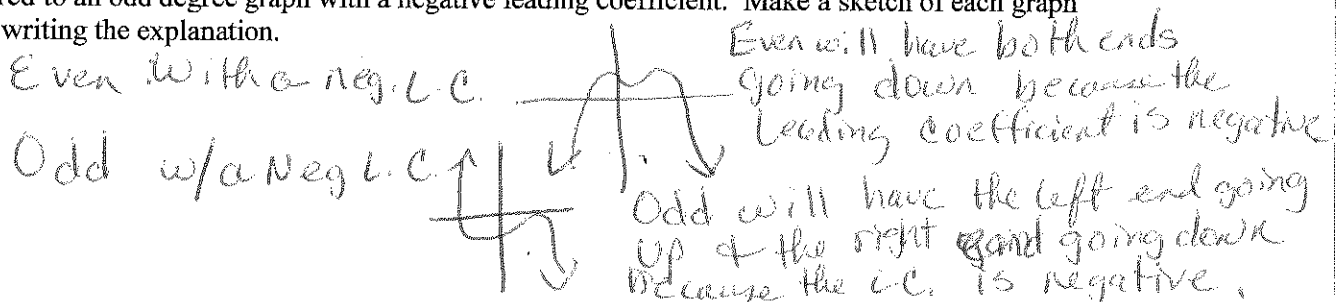 red to an odd degree graph with a negative leading coefficient. Make a sketch of each graph
writing the explanation.
Even with a neg. L.C.
Even will have both ends
going down because the
Leading coefficient is negative
Odd w/a Neg L.C.
Odd will have the left end going
up & the right end going down
because the L.C. is negative.